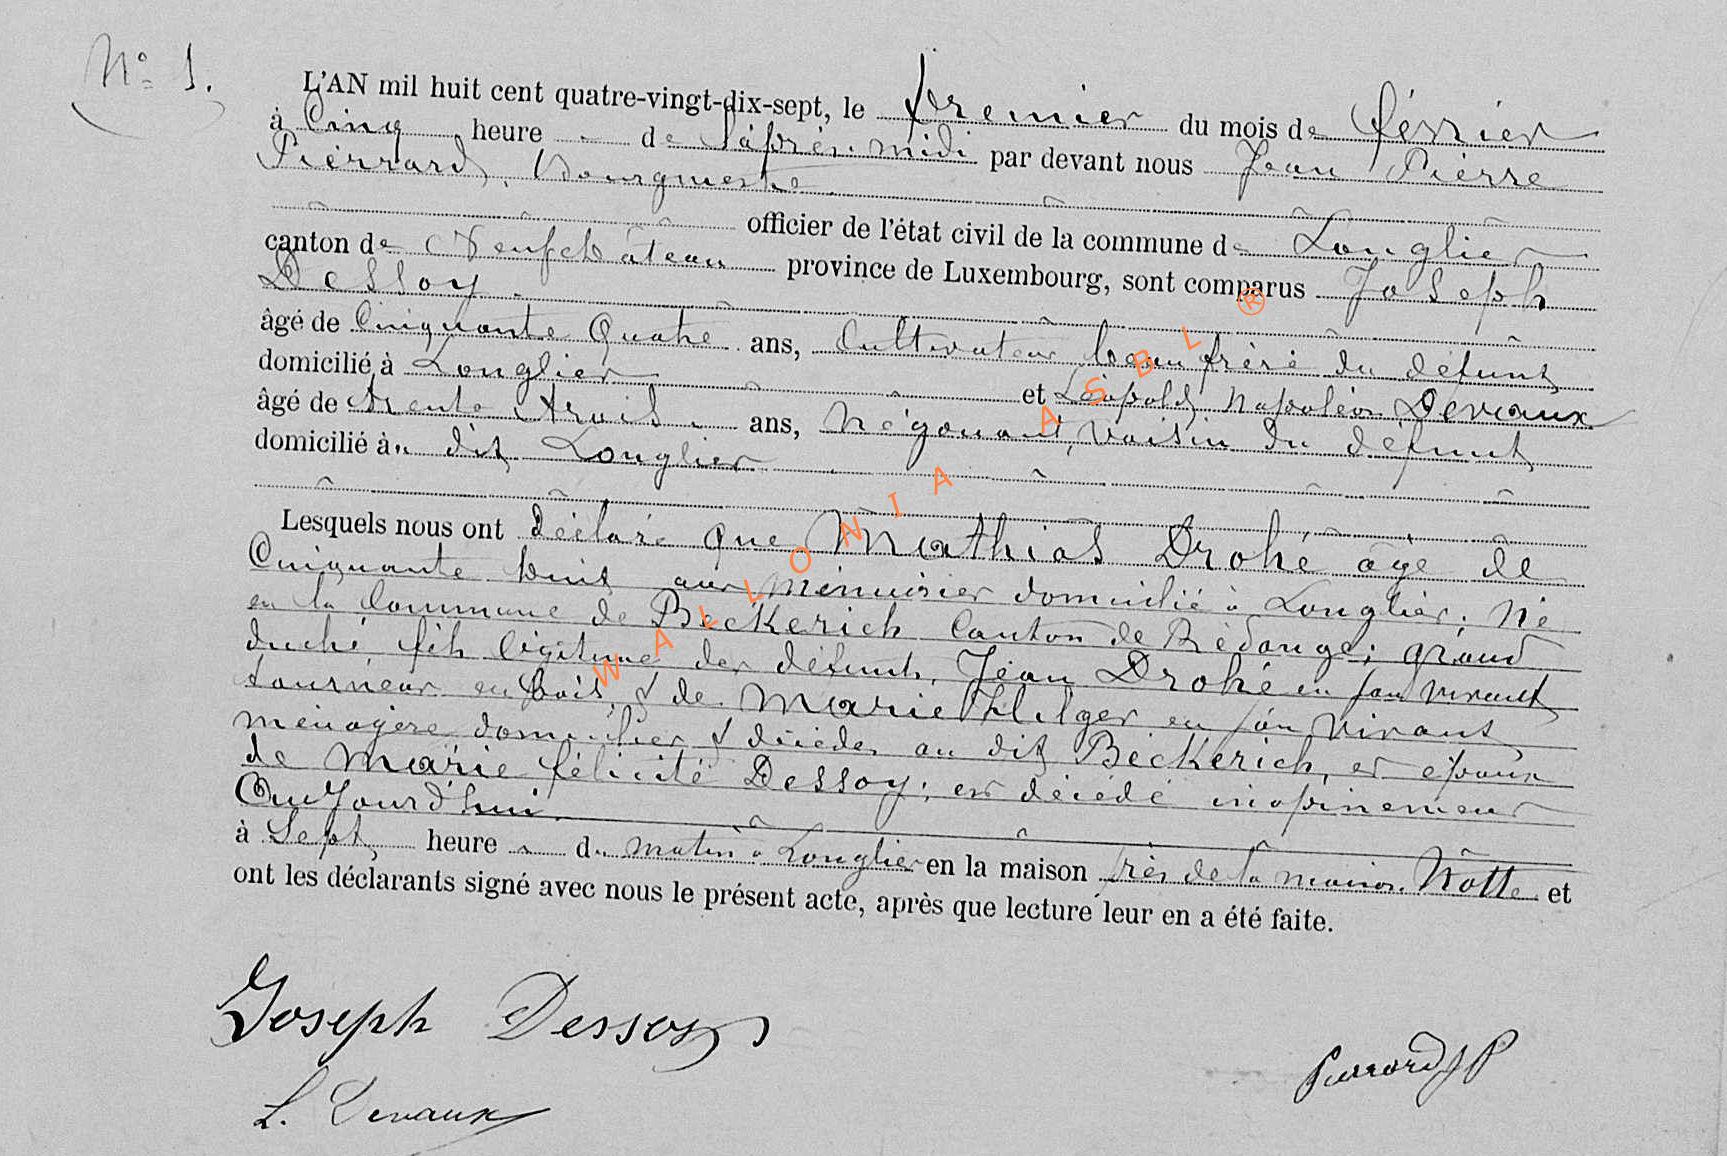 N° 1.
L'AN mil huit cent quatre-vingt-dix-sept, le premier du mois de février
à Cinq heure de l'après-midi par devant nous Jean Pierre
Pierrard, Bourgmestre
officier de l'état civil de la commune de Longlier
canton de Neufchâteau province de Luxembourg, sont comparus Joseph
Dessoy
âgé de Cinquante Quatre ans, Cultivateur beau frère du défunt
domicilié à Longlier et Léopold Napoléon Devaux
âgé de trente trois ans, Négociant, voisin du défunt
domicilié à dit Longlier
Lesquels nous ont déclaré que Mathias Drohé âgé de
Cinquante huit ans menuisier domicilié à Longlier, né
en la Commune de Beckerich Canton de Rédange; grand
duché, fils légitime des défunts, Jean Drohé en son vivant
tourneur en bois, & de Marie Hilger en son vivant
ménagère domiciliés & décédés au dit Beckerich, et époux
de Marie félicité Dessoy; est décédé inopinément
Aujourd'hui
à Sept heure du matin à Longlier en la maison près de la maison Notte et
ont les déclarants signé avec nous le présent acte, après que lecture leur en a été faite.
Joseph Dessoy
Pierrard J P
L. Devaux
WALLONIA ASBL ®